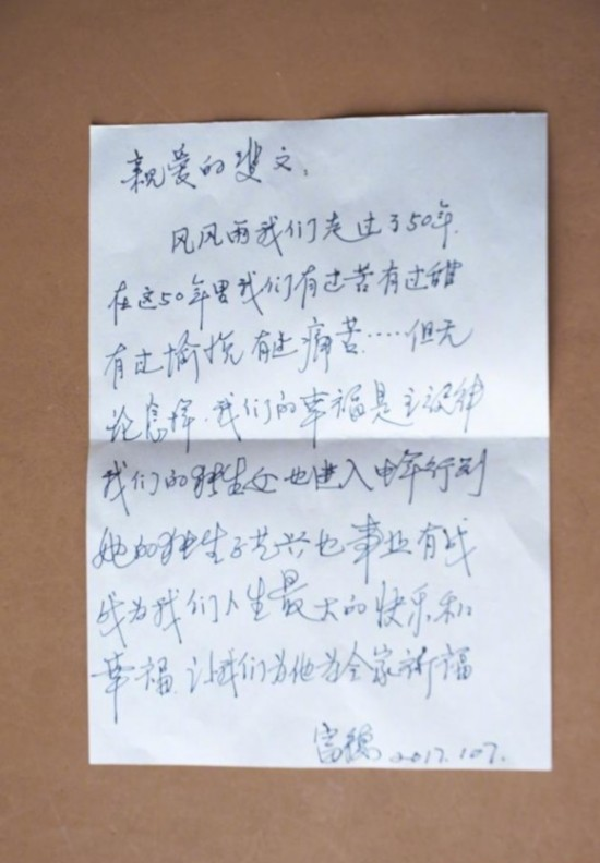 亲爱的斐文：
风风雨我们走过了50年.
在这50年里我们有过苦有过甜
有过愉悦 有过痛苦.……但无
论怎样.我们的幸福是主旋律
我们的独生女也进入中年行列
她的独生子艺兴也事业有成
成为我们人生最大的快乐和
幸福.让我们为他为全家祈福
富德 2017.10.7.